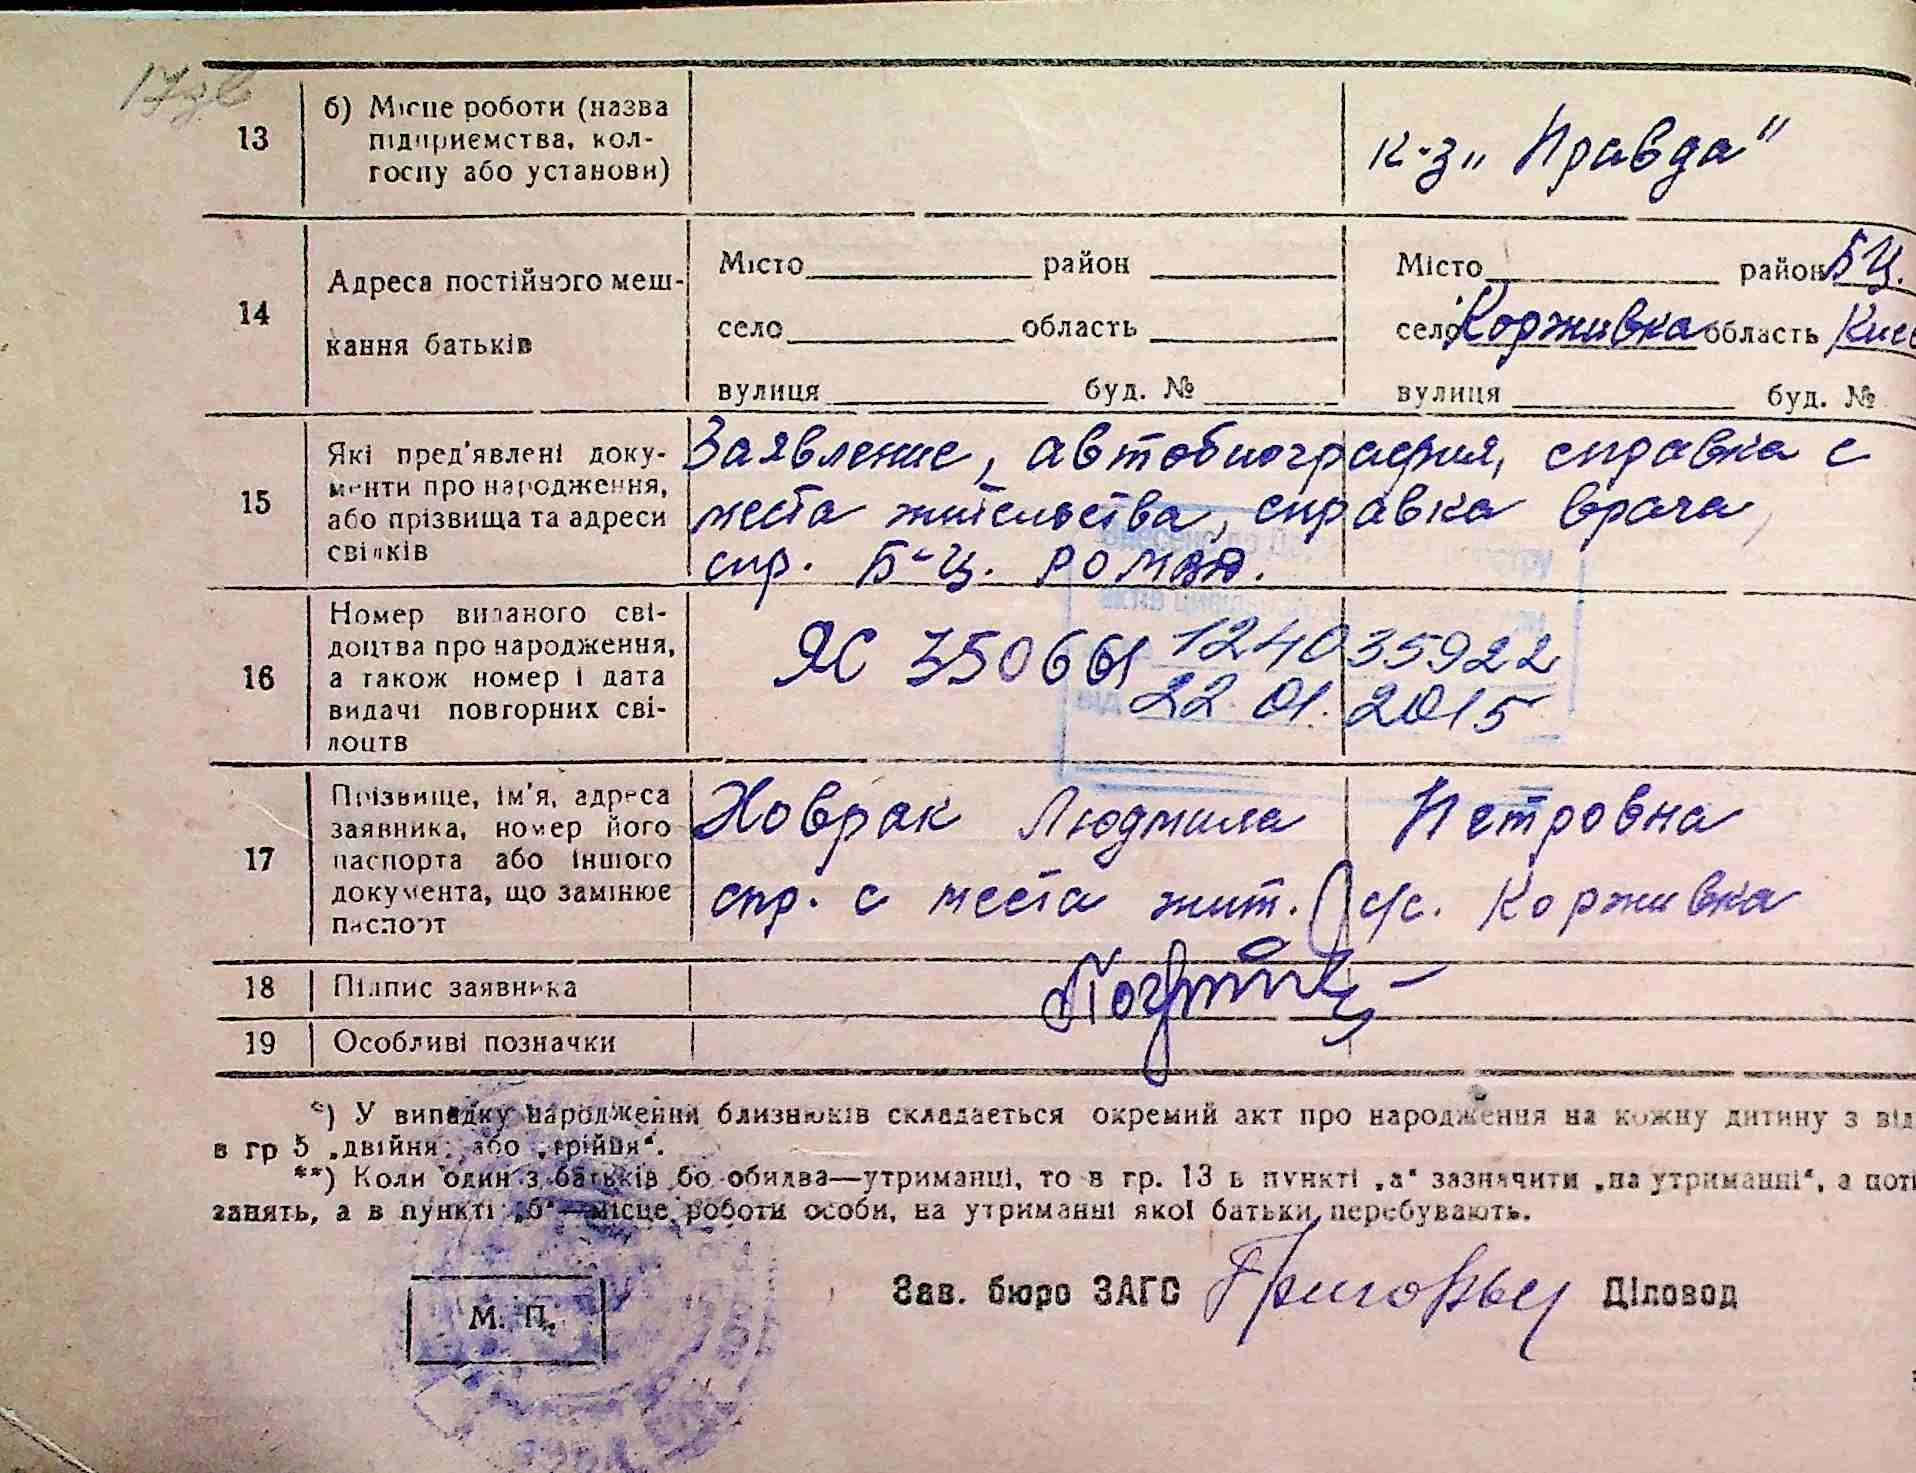 13
б) Місце роботи (назва
підприємства, кол-
госпу або установи)
к-з „Правда"
14
Адреса постійного меш-
кання батьків
Місто район
село область
вулиця буд. №
Місто район Б Ц.
село Корживка область Киев
вулиця буд. №
15
Які пред'явлені доку-
менти про народження,
або прізвища та адреси
свідків
Заявление, автобиография, справка с
места жительства, справка врача,
спр. Б-Ц.
16
Номер виданого сві-
доцтва про народження,
а також номер і дата
видачі повторних сві-
доцтв
ЯС 350661 1240 35922
22.01.2015
17
Прізвище, ім'я, адреса
заявника, номер його
паспорта або іншого
документа, що замінює
паспорт
Ховрак Людмила Петровна
спр. с места жит. с/с. Корживка
18
Підпис заявника
19
Особливі позначки
*) У випадку народження близнюків складається окремий акт про народження на кожну дитину з від
в гр 5 „двійня" або „трійня".
**) Коли один з батьків бо обидва—утриманці, то в гр. 13 в пункті „а" зазначити „на утриманні", а поті
занять, а в пункті „б"—місце роботи особи, на утриманні якої батьки перебувають.
М. П.
Зав. бюро ЗАГС Діловод